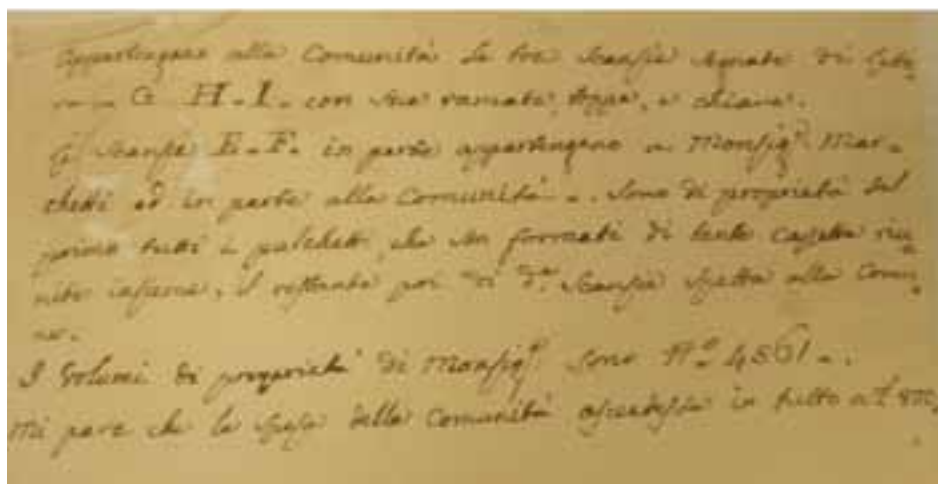 appartengano alla Comunità le tre Scansie segnate di Lette
ra G H. I. con sua ramata, e chiave.
Le Scansie E. F. in parte appartengano a Monsig.r Mar=
chetti ed in parte alla Comunità. Sono di proprietà del
primo tutti i palchetti, che son formati di tante cassette riu
nite insieme, il restante poi di d.e Scansie spetta alla Comu
ne.
I Volumi di proprietà di Monsig.r sono N.o 4561.
Mi pare che la spesa della Comunità in tutto a